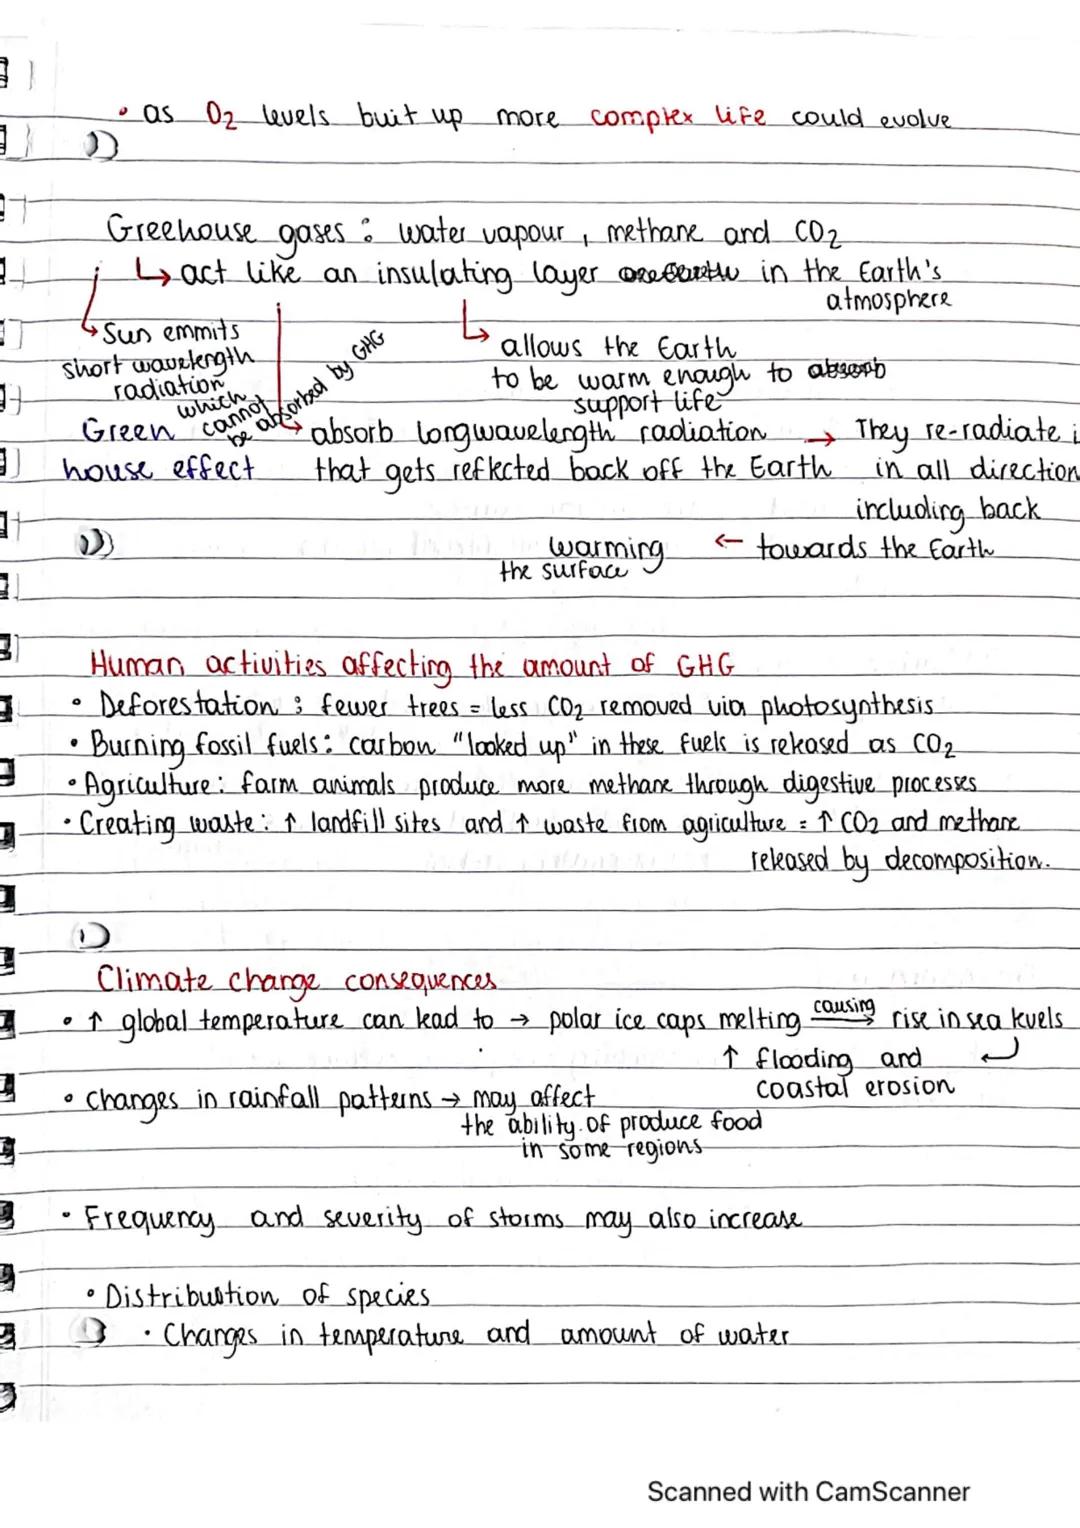 • as O2 levels buit up more complex life could evolve
Greehouse gases : water vapour , methane and CO2
↳ act like an insulating layer in the Earth's
atmosphere
↳ Sun emmits
short wavelength
radiation
which
cannot
be absorbed by GHG
↳ allows the Earth
to be warm enough to absorb
support life
Green
house effect
↳ absorb longwavelength radiation → They re-radiate i
that gets reflected back off the Earth in all direction
including back
warming ← towards the Earth
the surface
Human activities affecting the amount of GHG
• Deforestation : fewer trees = less CO2 removed via photosynthesis
• Burning fossil fuels: carbon "locked up" in these fuels is released as CO2
• Agriculture : farm animals produce more methane through digestive processes
• Creating waste : ↑ landfill sites and ↑ waste from agriculture = ↑ CO2 and methane
released by decomposition.
Climate change consequences
• ↑ global temperature can lead to → polar ice caps melting causing → rise in sea levels
↑ flooding and ↵
coastal erosion
• changes in rainfall patterns → may affect
the ability of produce food
in some regions
• Frequency and severity of storms may also increase
• Distribution of species
• Changes in temperature and amount of water
Scanned with CamScanner